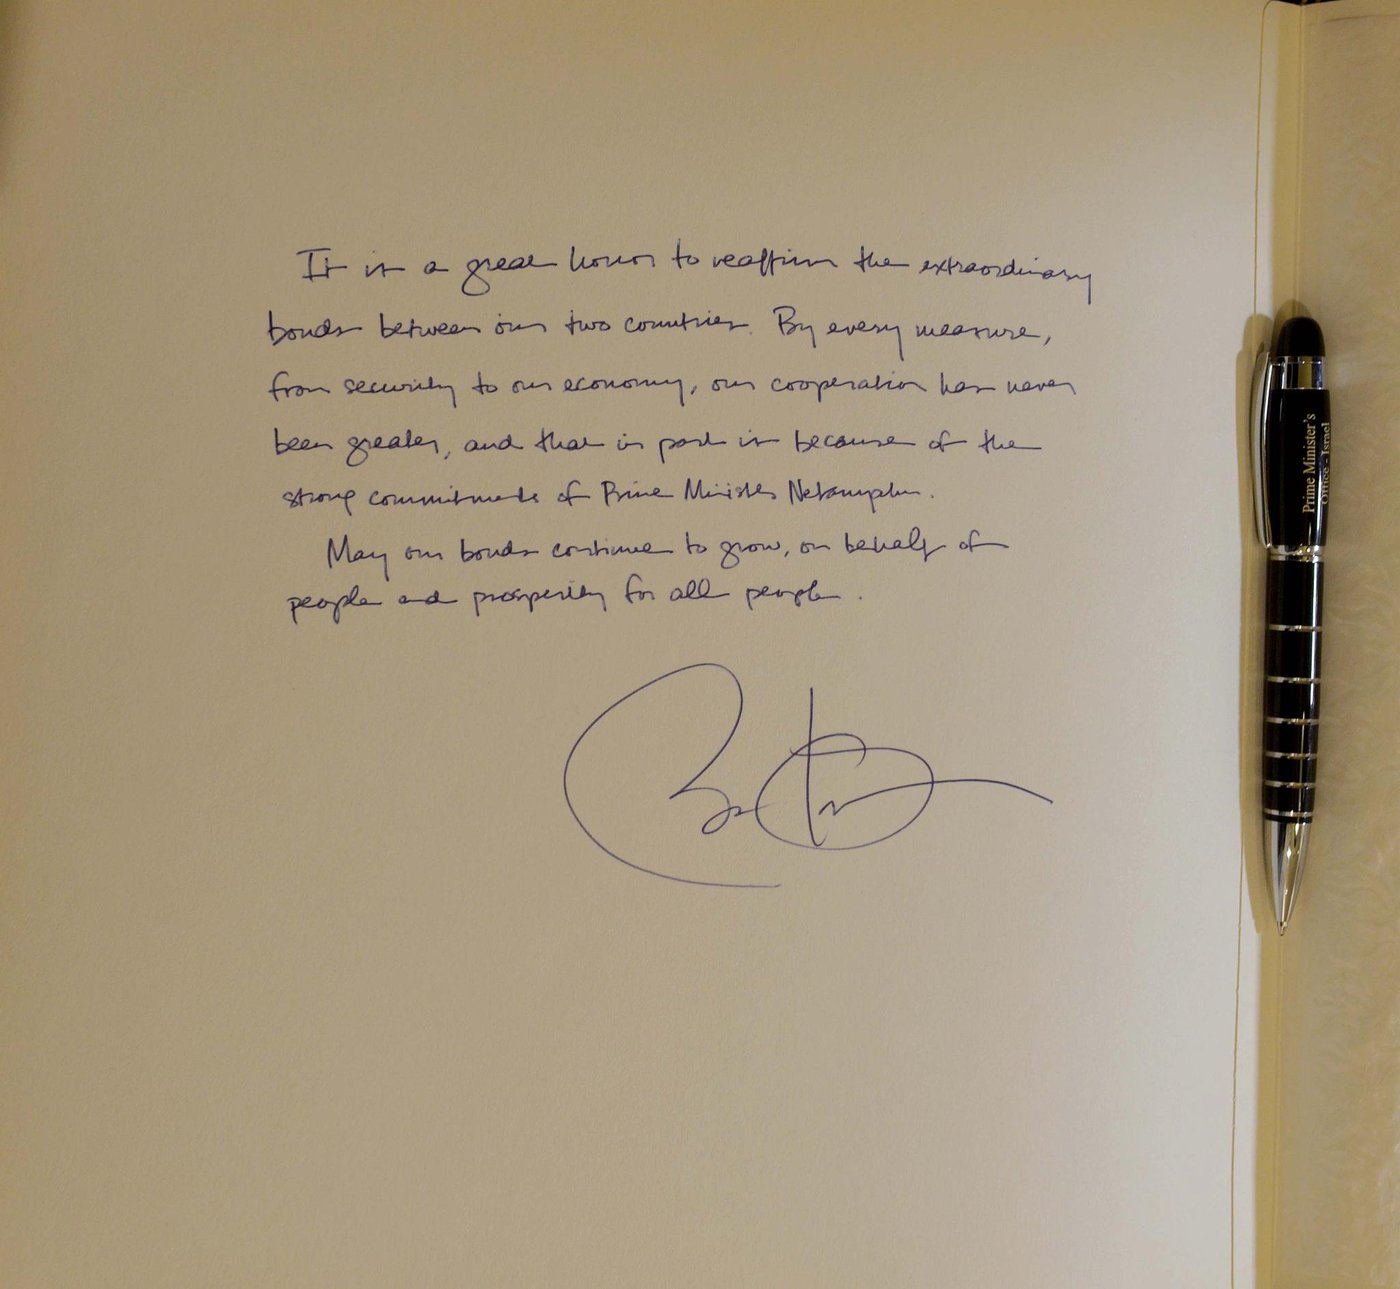 It is a great honor to reaffirm the extraordinary
bonds between our two countries. By every measure,
from security to our economy, our cooperation has never
been greater, and that in part is because of the
strong commitments of Prime Minister Netanyahu.
May our bonds continue to grow, on behalf of
people and prosperity for all people.
Prime Minister's
Office - Israel